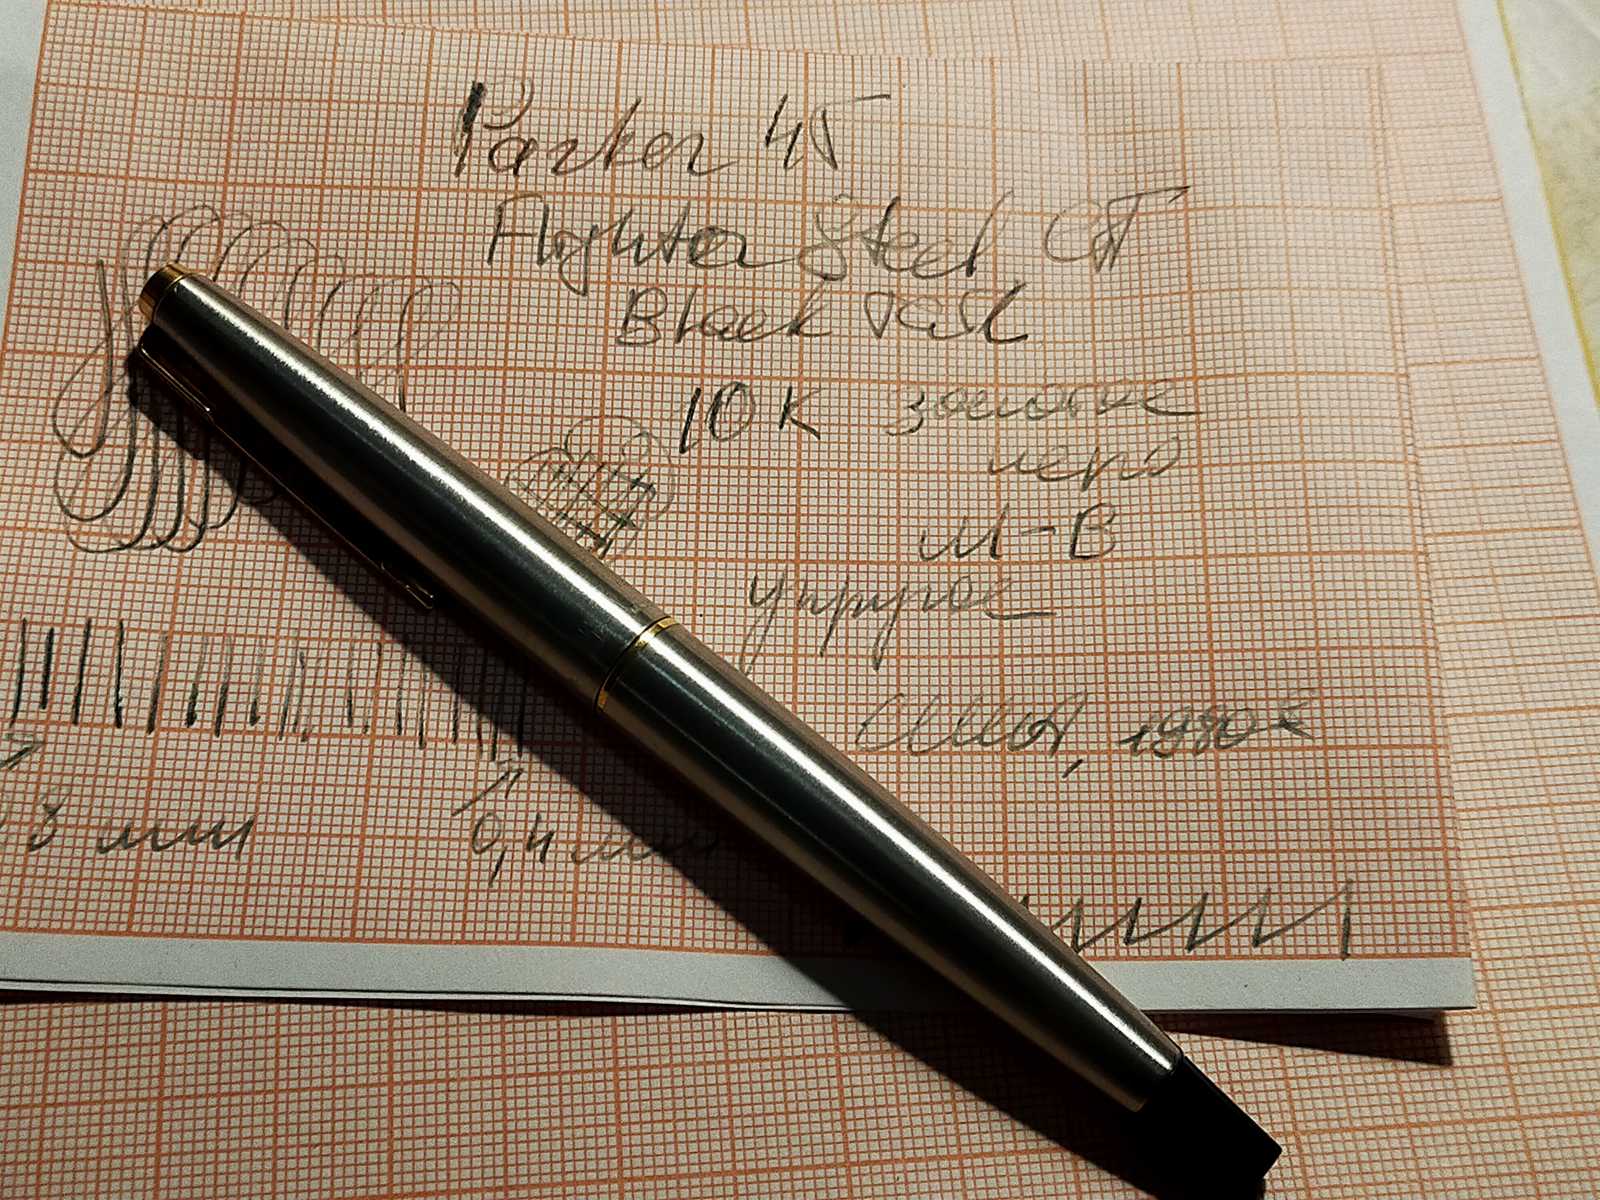 Parker 45
Flighter Steel GT
Black Tail
10К золотое
перо
M-B
упругое
США, 1980е
8 мм
0,4 мм